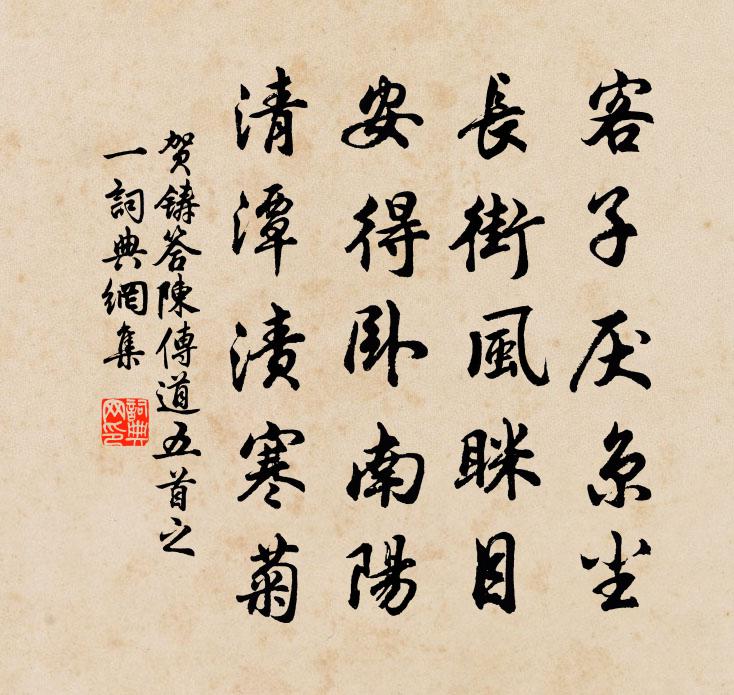 客子厌京尘
長街風眯目
安得卧南陽
清潭漬寒菊
贺鑄答陳傳道五首之
一詞典網集
詞典网印